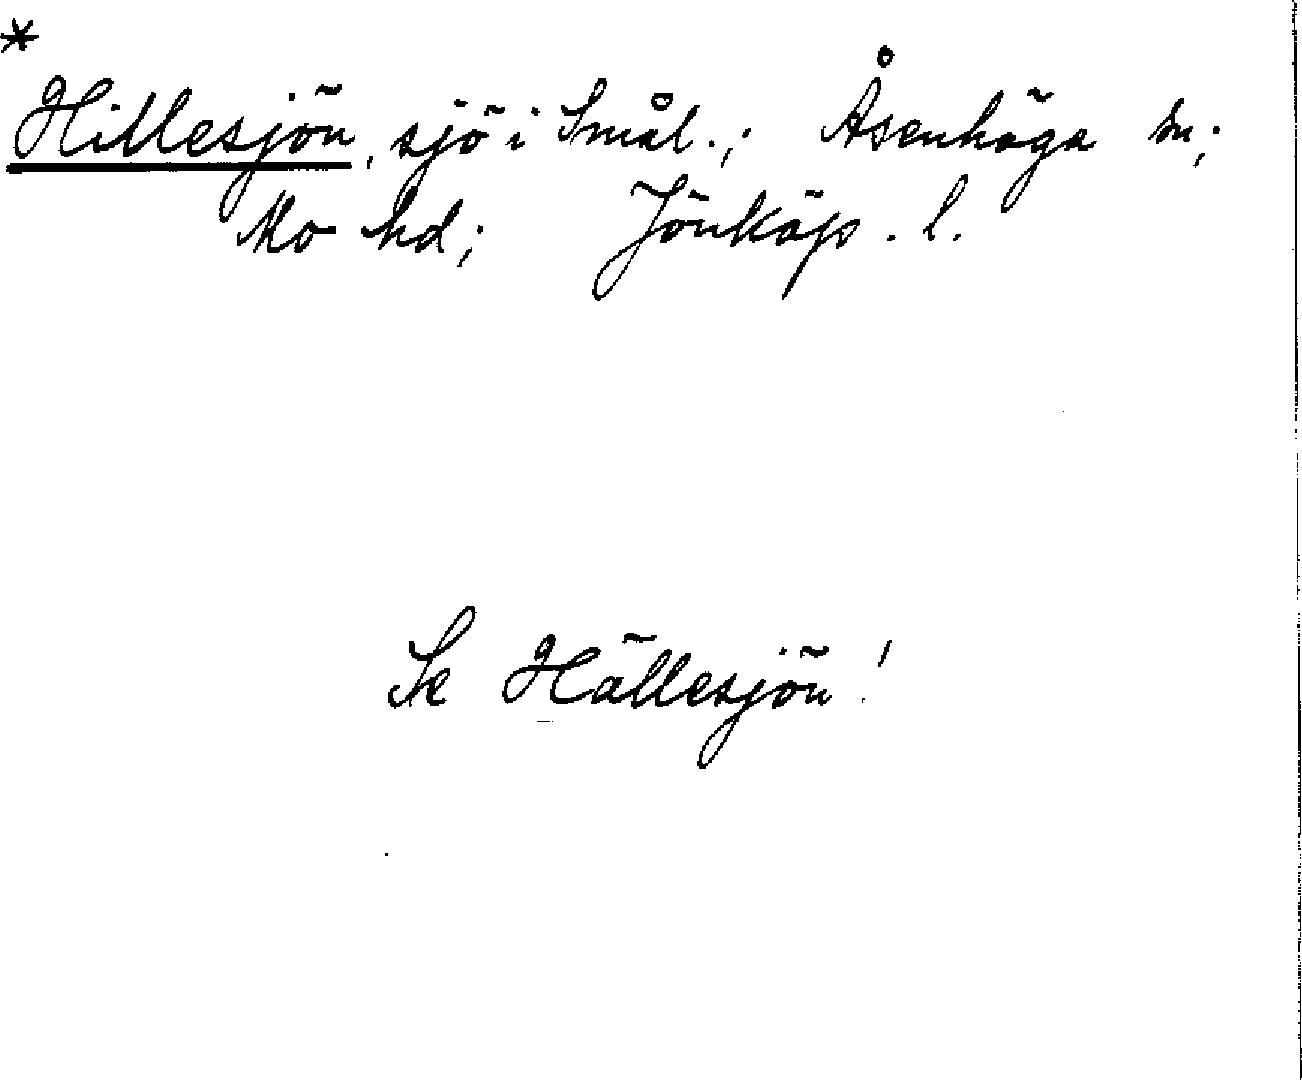 *
Hillesjön, sjö i Smål.; Åsenhöga sn;
Mo hd; Jönköp. l.
Se Hällesjön!